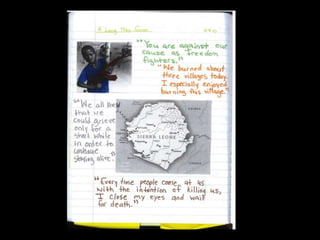 A Long Way Gone
"You are against our
cause as freedom
fighters."
"We burned about
three villages today.
I especially enjoyed
burning this village."
"We all
that we
could grieve
only for a
short while
in order to
continue
staying alive."
GUINEA
SIERRA LEONE
"Every time people come at us
with the intention of killing us,
I close my eyes and wait
for death."